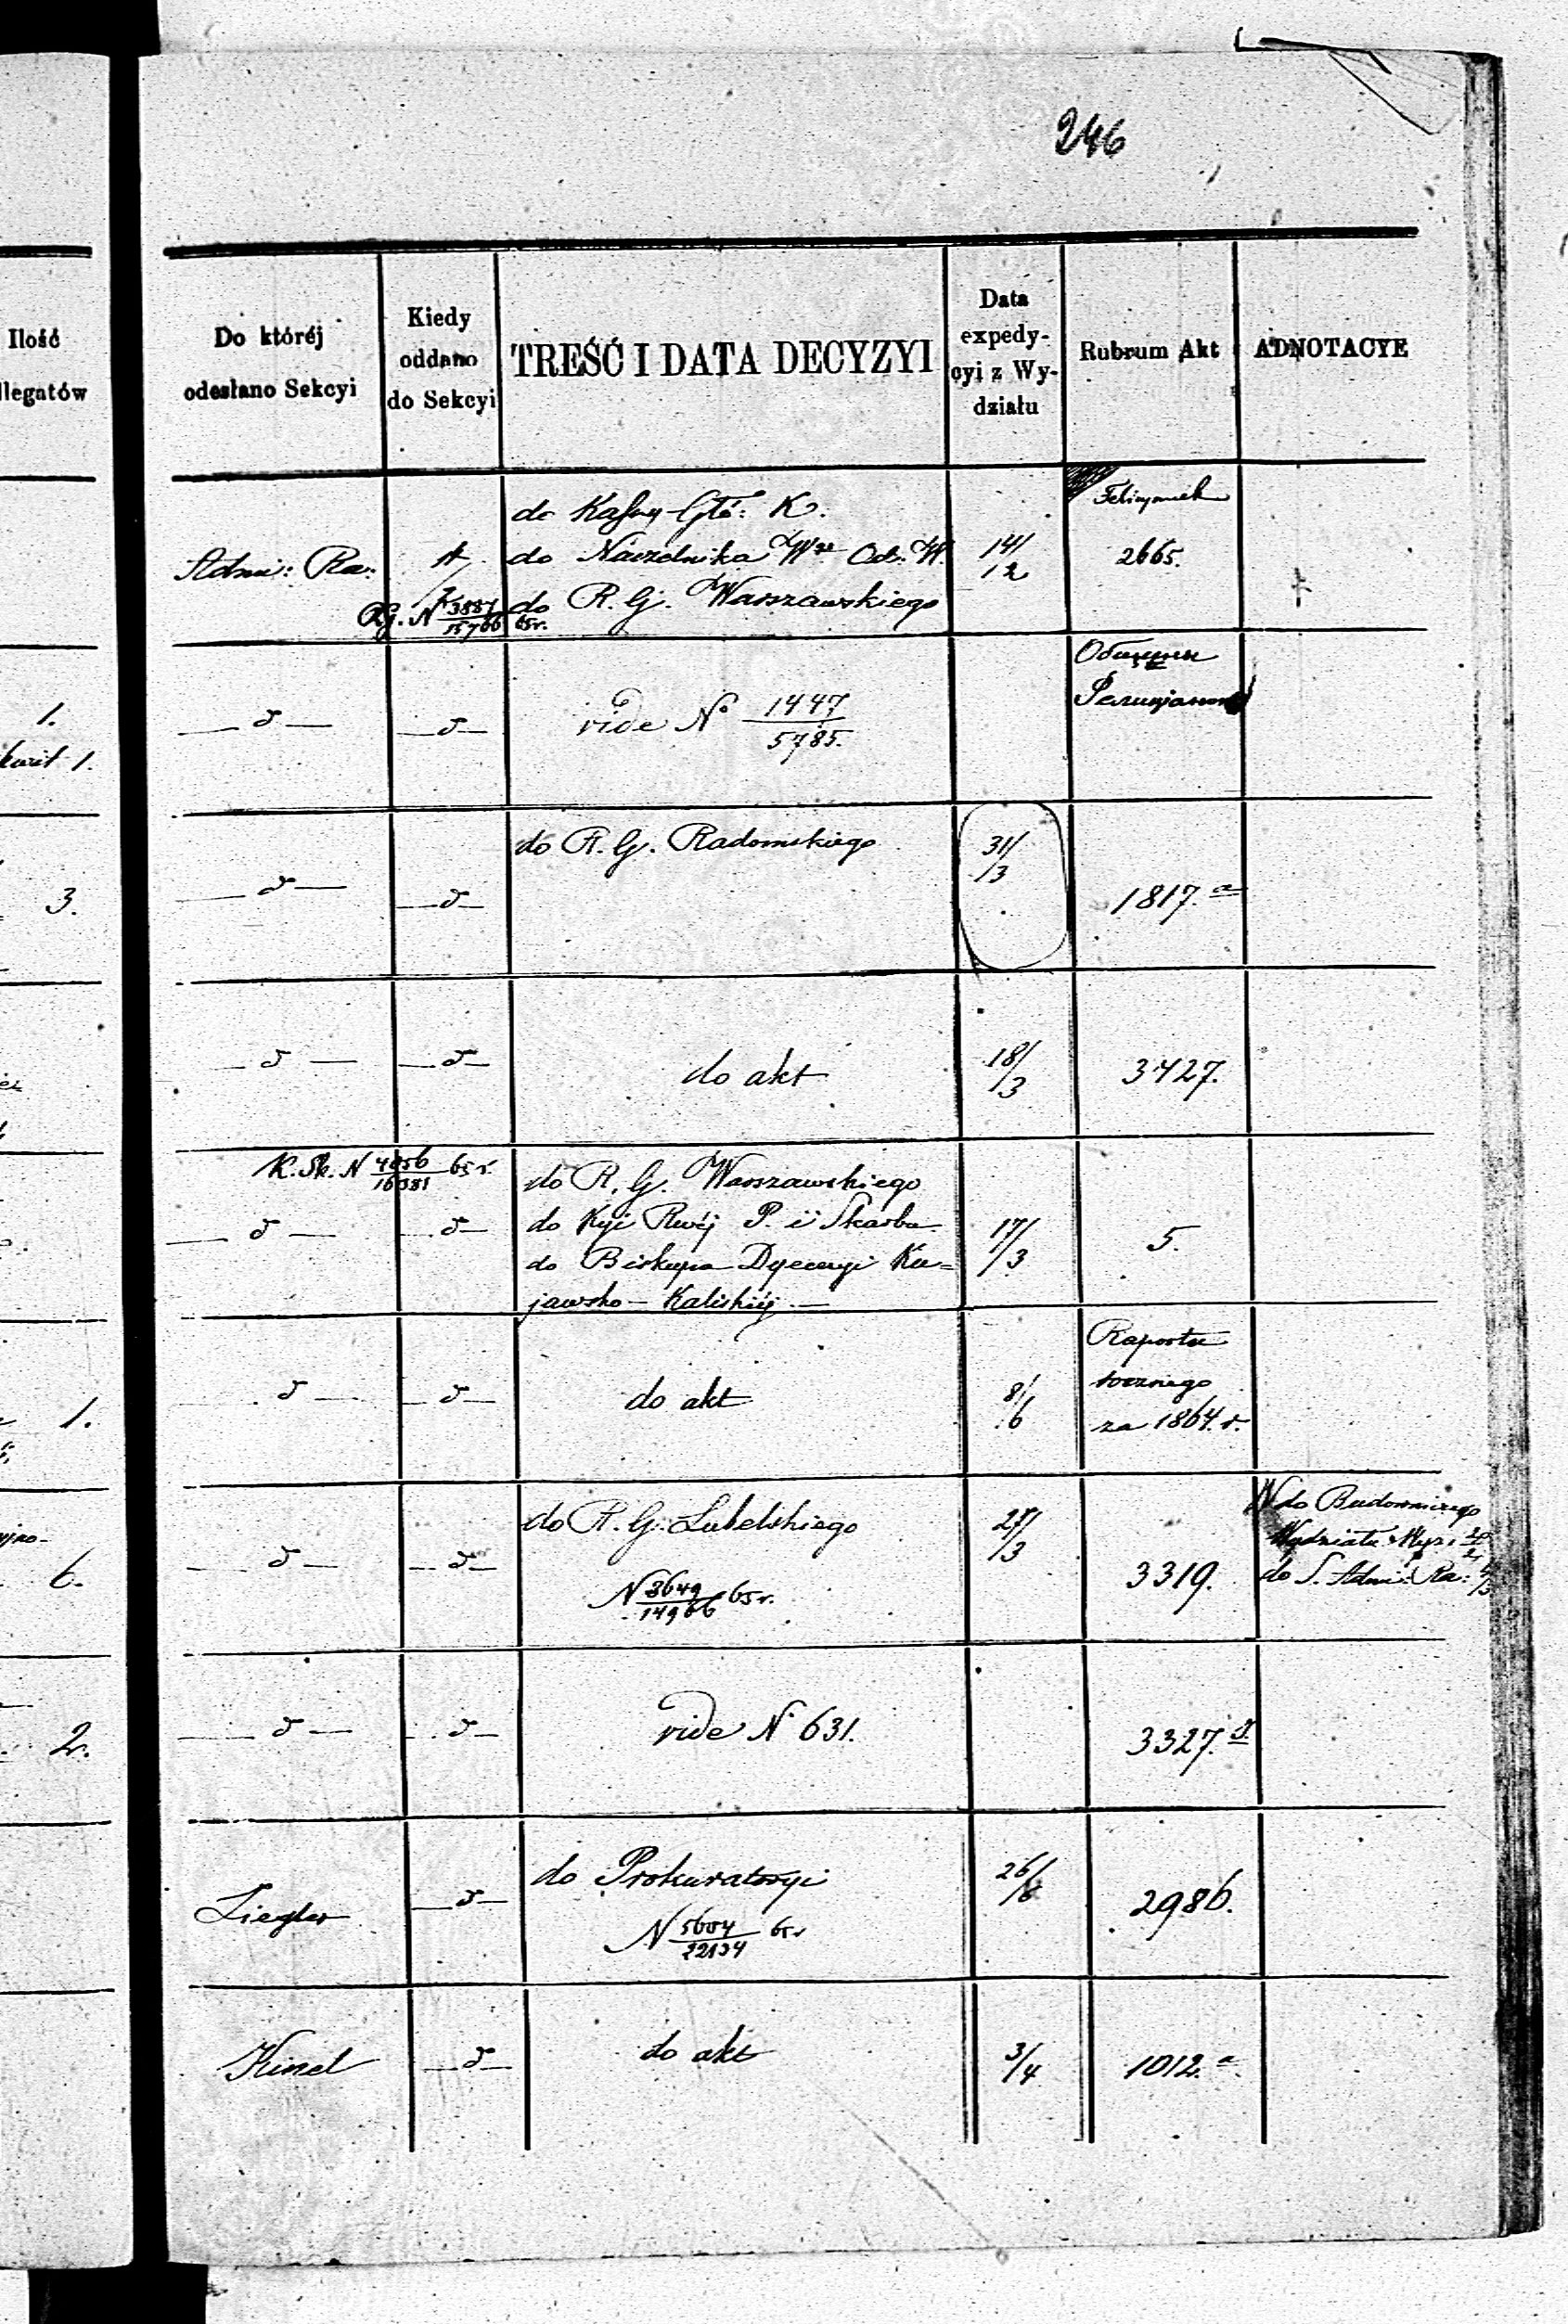 246
Ilość
llegatów
Do któréj
odesłano Sekcyi
Kiedy
oddano
do Sekcyi
TREŚĆ I DATA DECYZYI
Data
expedy-
cyi z Wy-
działu
Rubrum Akt
ADNOTACYE
Adm: Ra:
R.G. N 3887/15766 65 r.
do Kassy Głó: K.
do Naczelnika Od: W.
do R. G. Warszawskiego
14/12
2665.
1.
kwit 1.
— d —
— d —
vide No 1447/5785.
3.
— d —
— d —
do R. G. Radomskiego
31/3
1817. a
— d —
— d —
do akt
18/3
3427.
K. Sk. N 4056/16381 65 r.
— d —
— d —
do R. G. Warszawskiego
do Kyi Rwéj P. i Skarbu
do Biskupa Dyecezyi Ku=
jawsko - Kaliskiéj —
17/3
5.
1.
— d —
— d —
do akt
8/6
Raportu
rocznego
za 1864. r.
6.
— d —
— d —
do R. G. Lubelskiego
N 3649/14966 65 r.
27/3
3319.
do Budowniczego
Wydziału
do S. Adm: Ra:
2.
— d —
— d —
vide N 631.
3327.
Ziegler
— d —
do Prokuratoryi
N 5604/22134 65 r
26/
2986.
Kinel
— d —
do akt
3/4
1012. a